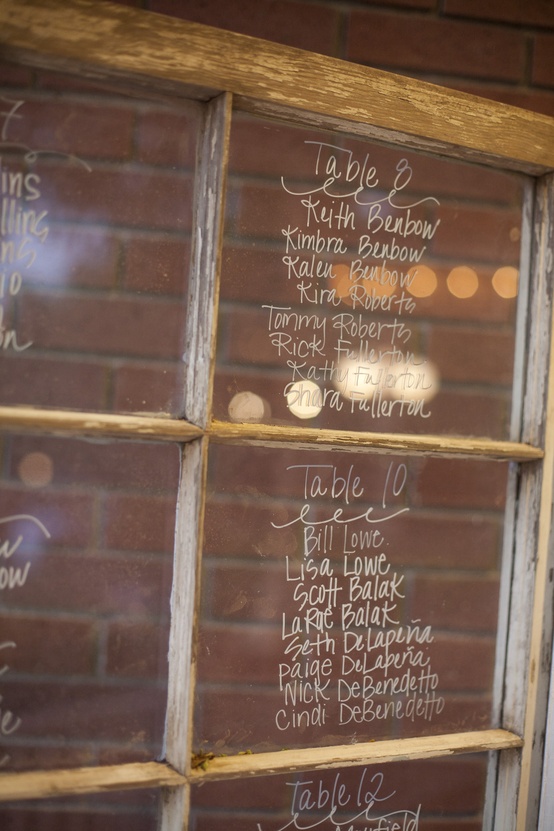 7
Table 8
Keith Benbow
Kimbra Benbow
Kalen Benbow
Kira Roberts
Tommy Roberts
Rick Fullerton
Kathy Fullerton
Shara Fullerton
Table 10
Bill Lowe
Lisa Lowe
Scott Balak
LaRae Balak
Seth DeLapeña
Paige DeLapeña
Nick DeBenedetto
Cindi DeBenedetto
Table 12